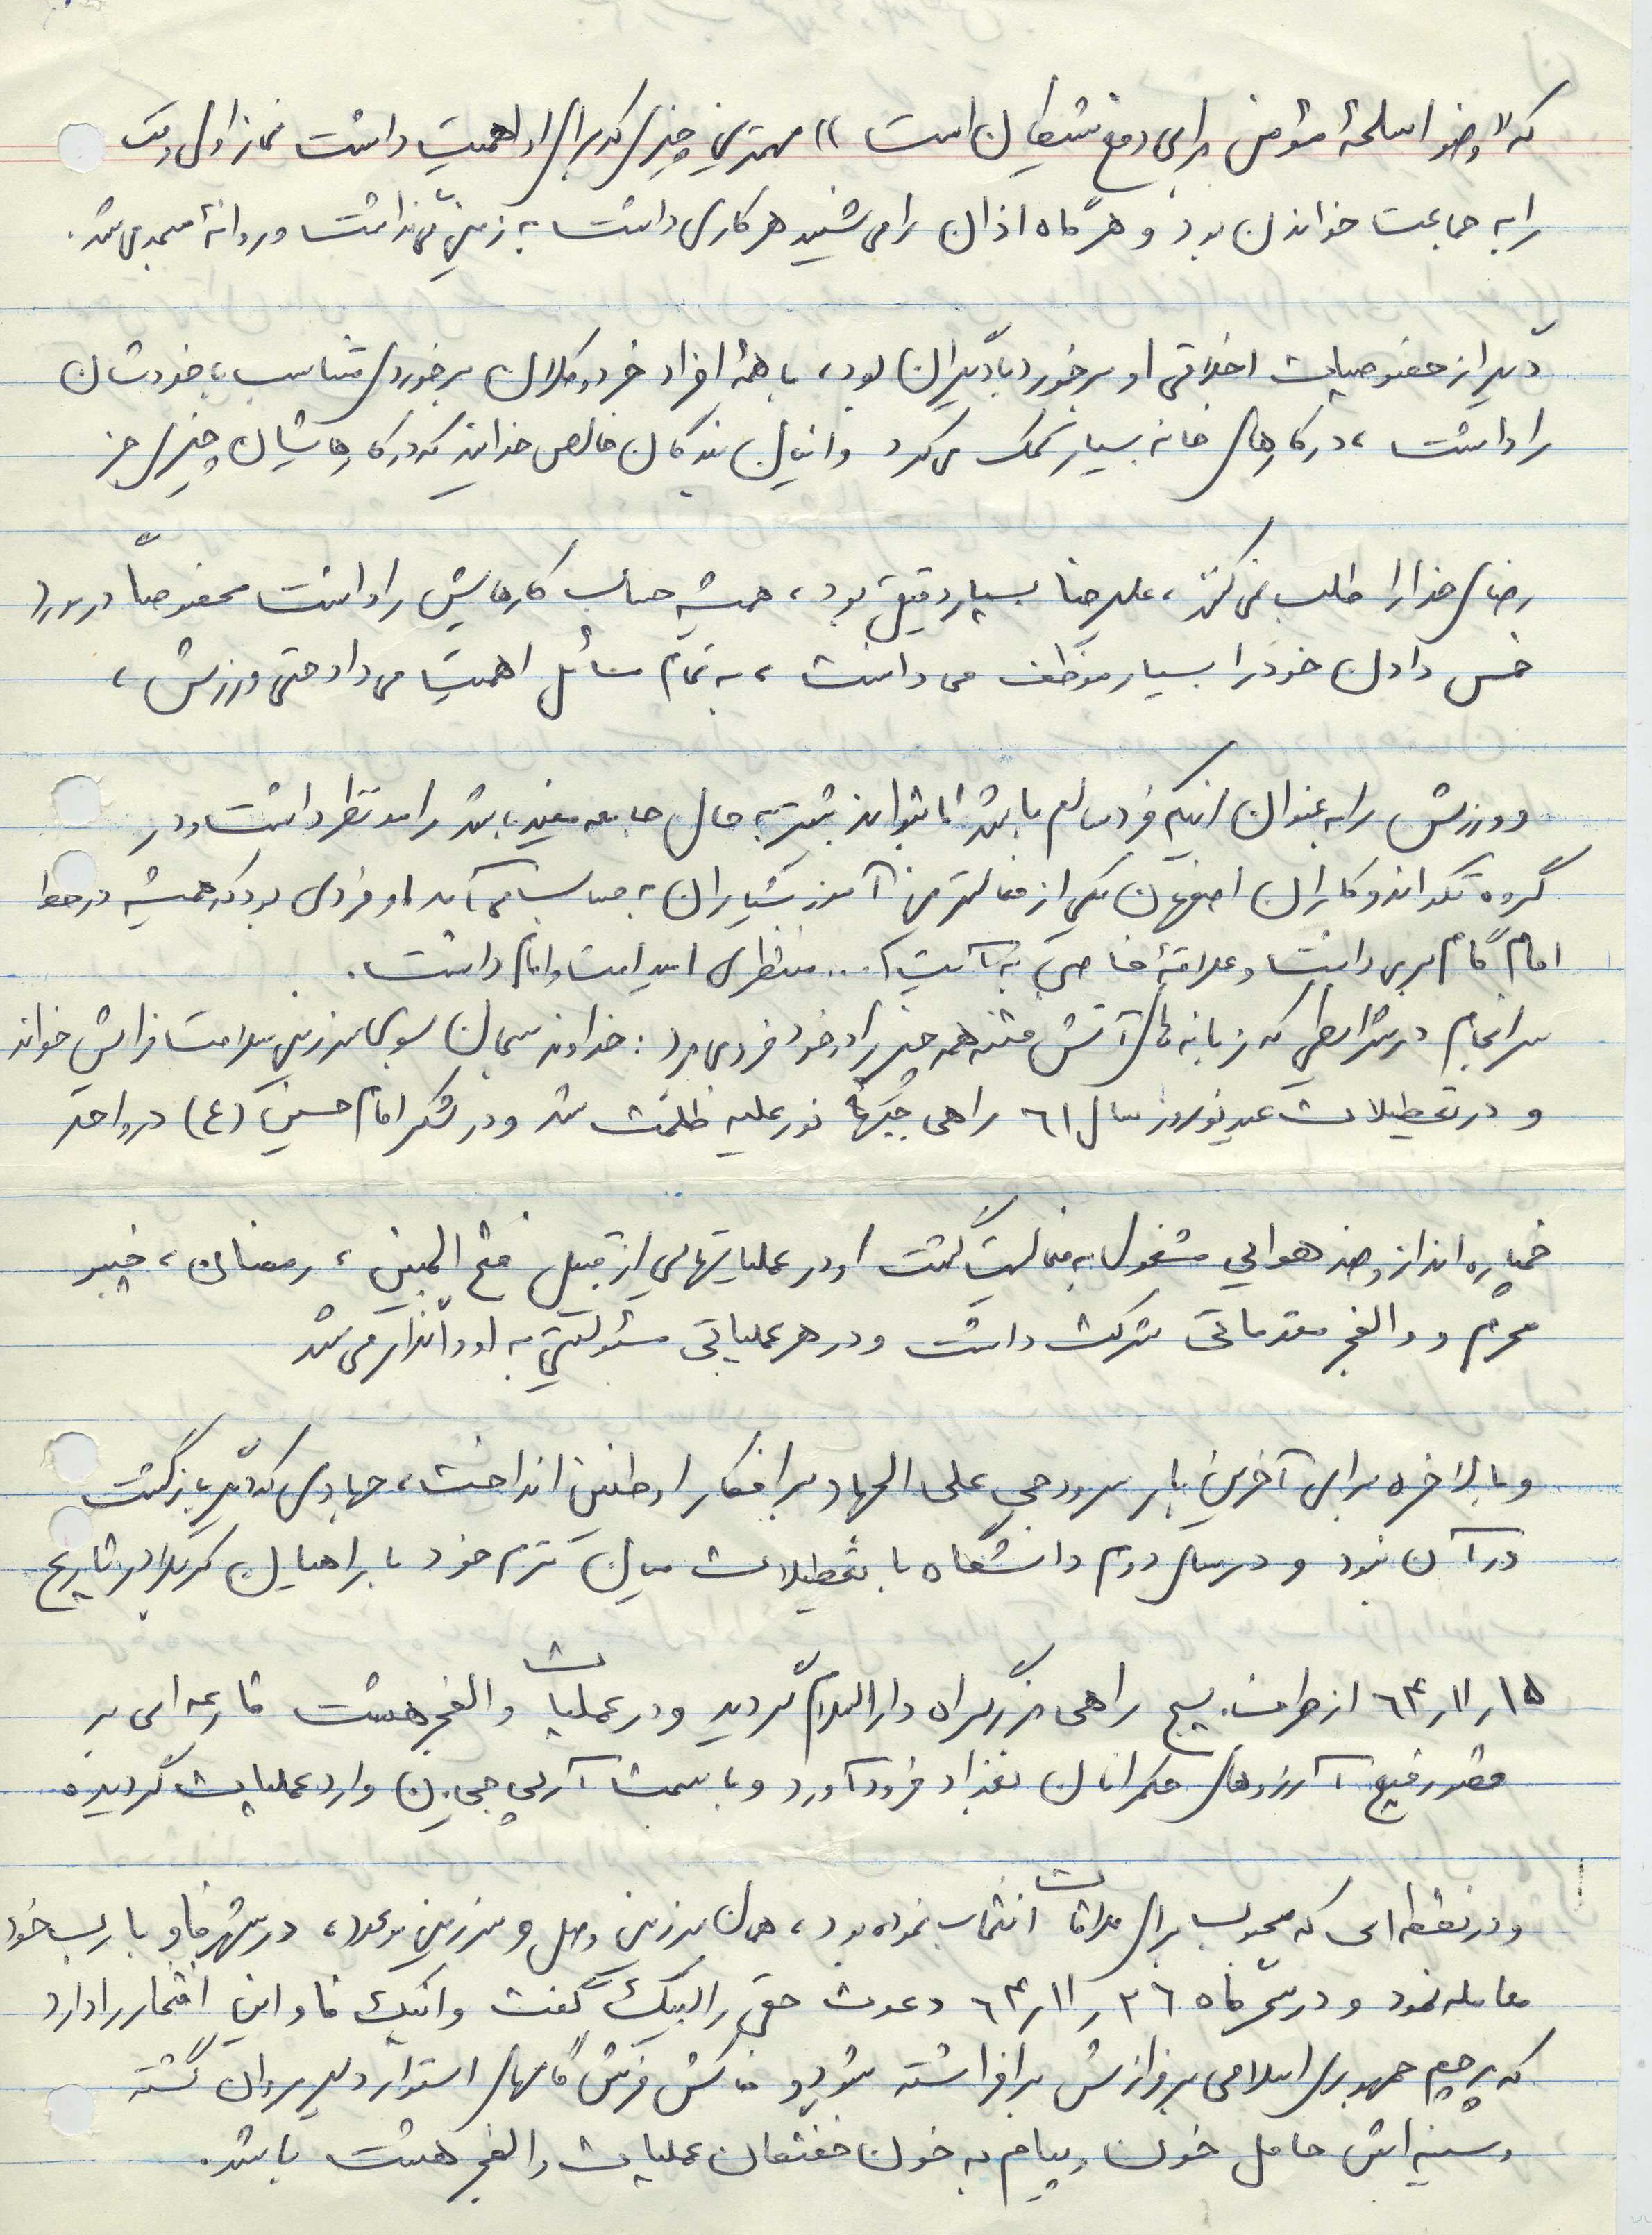 که «وضو اسلحهٔ مؤمن برای دفع شیطان است» مهمترین چیزی که برای او اهمیت داشت نماز اول وقت
را به جماعت خواندن بود و هرگاه اذان را می شنید هر کاری داشت به زمین می گذاشت و روانهٔ مسجد می شد.
دیگر از خصوصیات اخلاقی او برخورد با دیگران بود، با همهٔ افراد خرد و کلان برخوردی متناسب با خودشان
را داشت، در کارهای خانه بسیار کمک می کرد و اینان بندگان خالص خدایند که در کارهایشان چیزی جز
رضای خدا را طلب نمی کنند، علیرضا بسیار دقیق بود، همیشه حساب کارهایش را داشت مخصوصاً در مورد
خمس دادن خود را بسیار موظف می دانست، به تمام مسائل اهمیت می داد حتی ورزش،
و ورزش را به عنوان اینکه فرد سالم باشد تا بتواند بیشتر به حال جامعه مفید باشد را مدنظر داشت و در
گروه تکواندوکاران اصفهان یکی از فعالترین آموزشیاران به حساب می آمد. او فردی بود که همیشه در خط
امام گام برمی داشت و علاقهٔ خاصی به آیت ا... منتظری امید امت و امام داشت.
سرانجام در شرایطی که زبانه های آتش فتنه همه چیز را در خود فرو می برد: خداوند سبحان سوی سرزمین سلامت فرایش خواند
و در تعطیلات عید نوروز سال ۶۱ راهی جبههٔ نور علیه ظلمت شد و در لشکر امام حسین (ع) در واحد
خمپاره انداز و ضد هوایی مشغول به فعالیت گشت او در عملیاتهایی از قبیل فتح المبین، رمضان، خیبر
محرم و والفجر مقدماتی شرکت داشت و در هر عملیاتی مسئولیتی به او واگذار می شد
و بالاخره برای آخرین بار سرود حی علی الجهاد بر افکار او طنین انداخت، جهادی که دیگر بازگشت
در آن نبود و در سال دوم دانشگاه با تعطیلات میان ترم خود با راهیان کربلا در تاریخ
۱۵ر۱۱ر۶۴ از طرف بسیج راهی بزرگراه دارالسلام گردید و در عملیات والفجر هشت قارعه ای بر
قصر رفیع آرزوهای حکمرانان بغداد فرود آورد و با سمت آرپی جی زن وارد عملیات گردیده
و در نقطه ای که محبوب برای ملاقات انتخاب نموده بود، همان سرزمین وصل و سرزمین موعود، در شهر فاو با رب خود
معامله نمود و در سحرگاه ۲۶ر۱۱ر۶۴ دعوت حق را لبیک گفت و اینک فاو این افتخار را دارد
که پرچم جمهوری اسلامی بر فرازش برافراشته شود و خاکش فرش گامهای استوار دلیر مردان گشته
و سینه اش حامل خون و پیام به خون خفتگان عملیات والفجر هشت باشد.